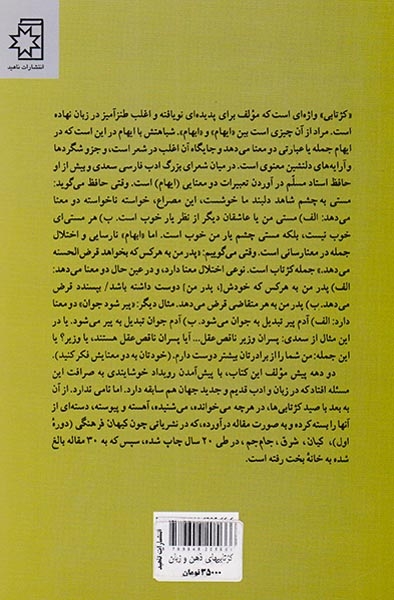 انتشارات ناهید
«کژتابی» واژه‌ای است که مؤلف برای پدیده‌ای نویافته و اغلب طنزآمیز در زبان نهاده
است. مراد از آن چیزی است بین «ایهام» و «ابهام». شباهتش با ایهام در این است که در
ایهام جمله یا عبارتی دو معنا می‌دهد و جایگاه آن اغلب در شعر است، و جزو شگردها
و آرایه‌های دلنشین معنوی است. در میان شعرای بزرگ ادب فارسی سعدی و بیش از او
حافظ استاد مسلّم در آوردن تعبیرات دو معنایی (ایهام) است. وقتی حافظ می‌گوید:
مستی به چشم شاهد دلبند ما خوشست، این مصراع، خواسته ناخواسته دو معنا
می‌دهد: الف) مستی من یا عاشقان دیگر از نظر یار خوب است. ب) هر مستی‌ای
خوب نیست، بلکه مستی چشم یار من خوب است. اما «ابهام» نارسایی و اختلال
جمله در معنارسانی است. وقتی می‌گوییم: «پدر من به هرکس که بخواهد قرض‌الحسنه
می‌دهد.» جمله کژتاب است. نوعی اختلال معنا دارد، و در عین حال دو معنا می‌دهد:
الف) پدر من به هرکس که خودش[، پدر من] دوست داشته باشد/ بپسندد قرض
می‌دهد. ب) پدر من به هر متقاضی قرض می‌دهد. مثال دیگر: «پیر شود جوان» دو معنا
دارد: الف) آدم پیر تبدیل به جوان می‌شود. ب) آدم جوان تبدیل به پیر می‌شود. یا در
این مثال از سعدی: پسران وزیر ناقص‌عقل... آیا پسران ناقص‌عقل هستند، یا وزیر؟ یا
این جمله: من شما را از برادرتان بیشتر دوست دارم. (خودتان به دو معنایش فکر کنید).
دو دهه پیش مؤلف این کتاب، با پیش‌آمدن رویداد خوشایندی به صرافت این
مسئله افتاد که در زبان و ادب قدیم و جدید جهان هم سابقه دارد. اما نامی ندارد. از آن
به بعد با صید کژتابی‌ها، در هرچه می‌خوانده، می‌شنیده، آهسته و پیوسته، دسته‌ای از
آنها را بسته کرده و به صورت مقاله درآورده، که در نشریاتی چون کیهان فرهنگی (دورهٔ
اول)، کیان، شرق، جام‌جم، در طی ۲۰ سال چاپ شده، سپس که به ۳۰ مقاله بالغ
شده به خانهٔ بخت رفته است.
کژتابیهای ذهن و زبان
۳۵۰۰۰ تومان
انتشارات ناهید